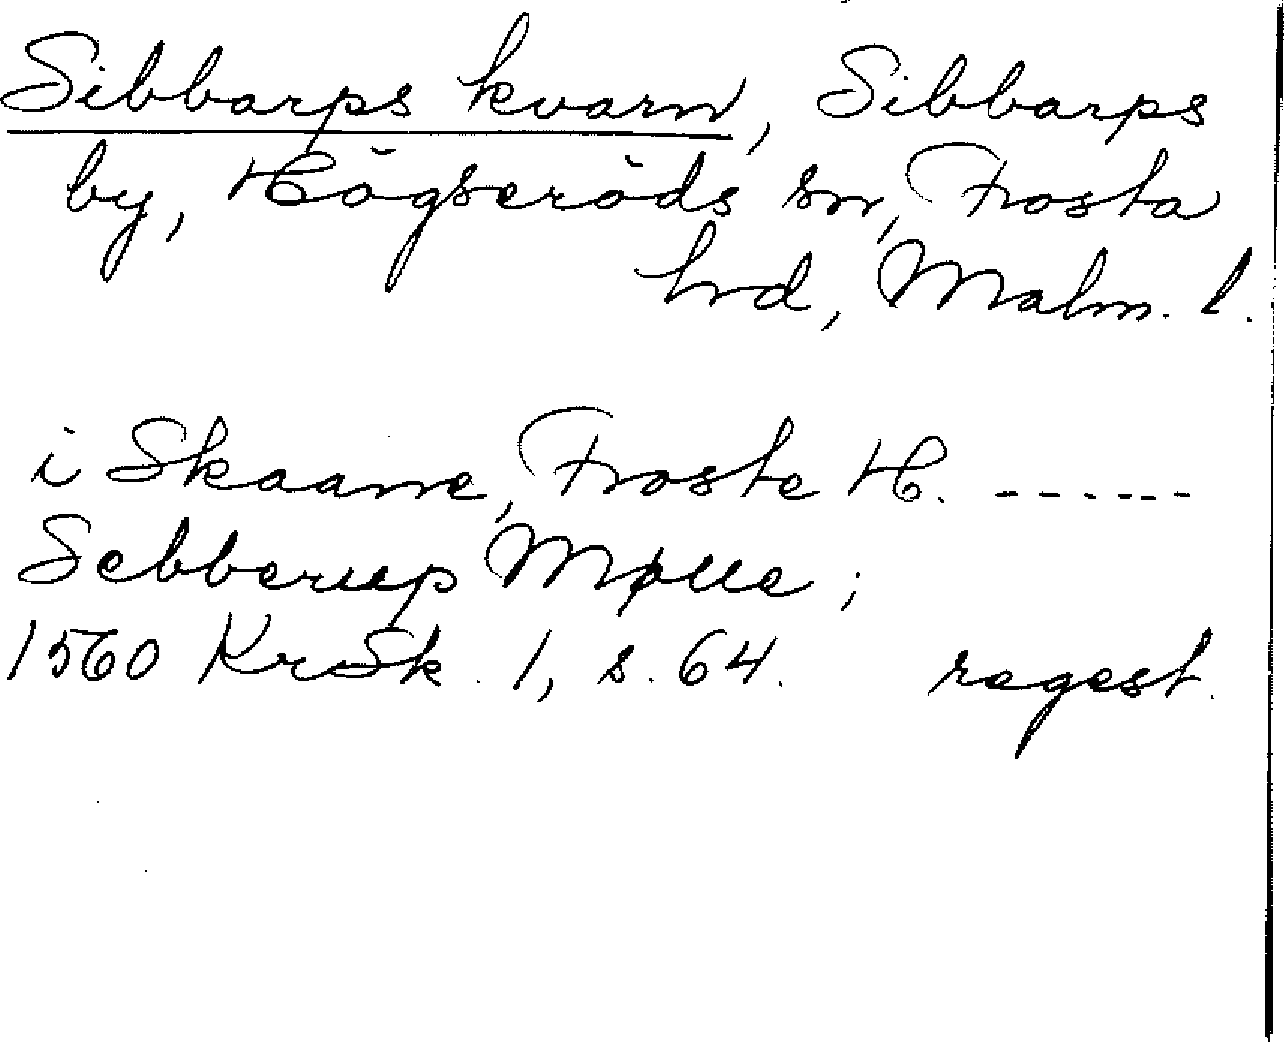 Sibbarps kvarn, Sibbarps
by, Högseröds sn, Frosta
hrd, Malm. l.
i Skaane, Froste H. ------
Sebberup Mølle;
1560 KrSk. 1, s. 64. regest.